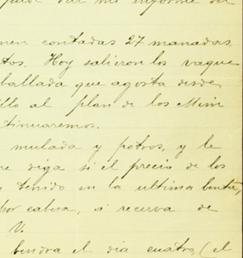 men contadas 27 manadas,
tos. Hoy salieron los vaque
ballada que agosta desde
llo al plan de los Mim
tinuaremos.
mulada y potros, y le
re diga si el precio de los
tenido en la ultima
por cabesa, a reserva de
V.
bendra el dia cuatro (el